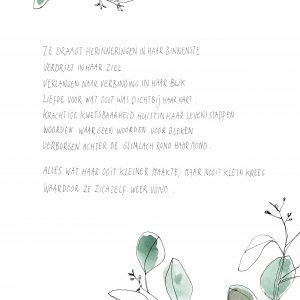 ZE DRAAGT HERINNERINGEN IN HAAR BINNENSTE
VERDRIET IN HAAR ZIEL
VERLANGEN NAAR VERBINDING IN HAAR BLIK
LIEFDE VOOR WAT OOIT WAS DICHTBIJ HAAR HART
KRACHTIGE KWETSBAARHEID HUIST IN HAAR LEVENSSTAPPEN
WOORDEN WAAR GEEN WOORDEN VOOR BLEKEN
VERBORGEN ACHTER DE GLIMLACH ROND HAAR MOND.
ALLES WAT HAAR OOIT KLEINER MAAKTE, MAAR NOOIT KLEIN KREEG
WAARDOOR ZE ZICHZELF WEER VOND.